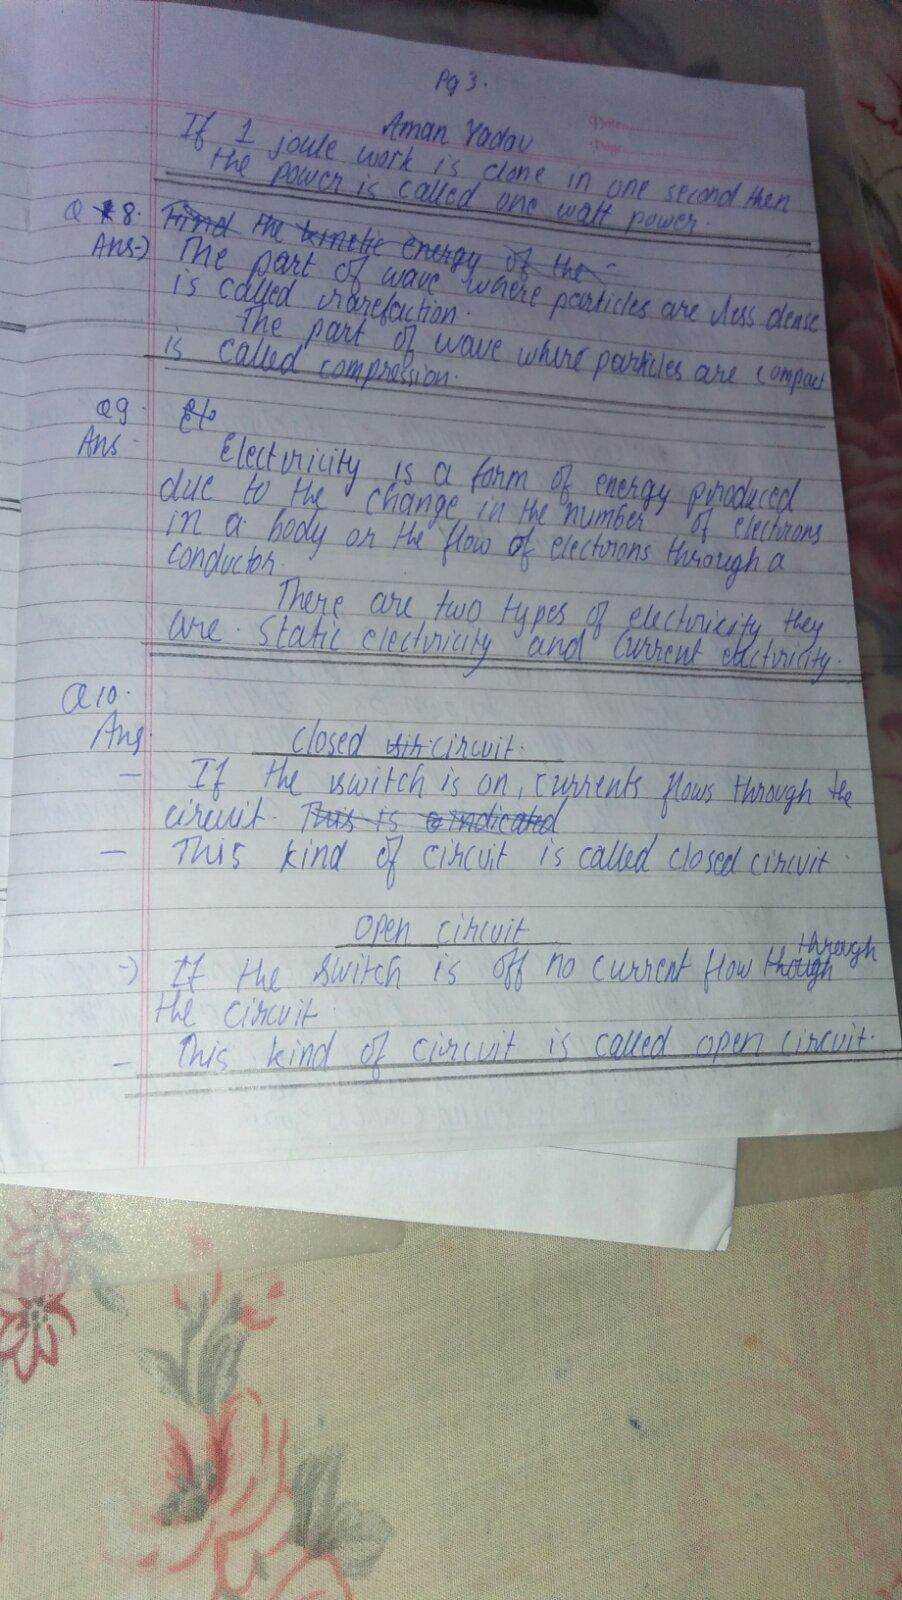 Pg 3.
Aman Yadav
Date
Page
If 1 joule work is done in one second then
the power is called one watt power.
Q 8. Find the kinetic energy of the -
Ans-) The part of wave where particles are less dense
is called rarefaction.
The part of wave where particles are compact
is called compression.
Q9. Ele
Ans- Electricity is a form of energy produced
due to the change in the number of electrons
in a body or the flow of electrons through a
conductor.
There are two types of electricity they
are. Static electricity and Current electricity.
Q10.
Ans. Closed circuit.
- If the switch is on, currents flows through the
circuit. This is indicated
- This kind of circuit is called closed circuit.
Open circuit
-) If the switch is off no current flow though through
the circuit.
- This kind of circuit is called open circuit.